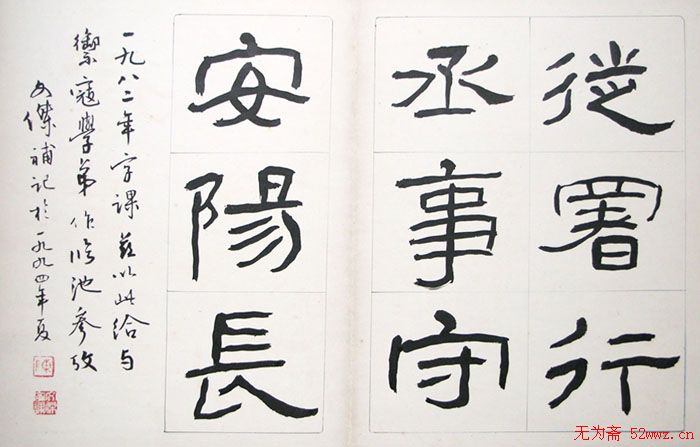 従署行
丞事守
安陽長
一九八二年字课兹以此给与
禦寇學弟作临池參攷
文傑補记於一九九四年夏
无为斋 52wwz.cn